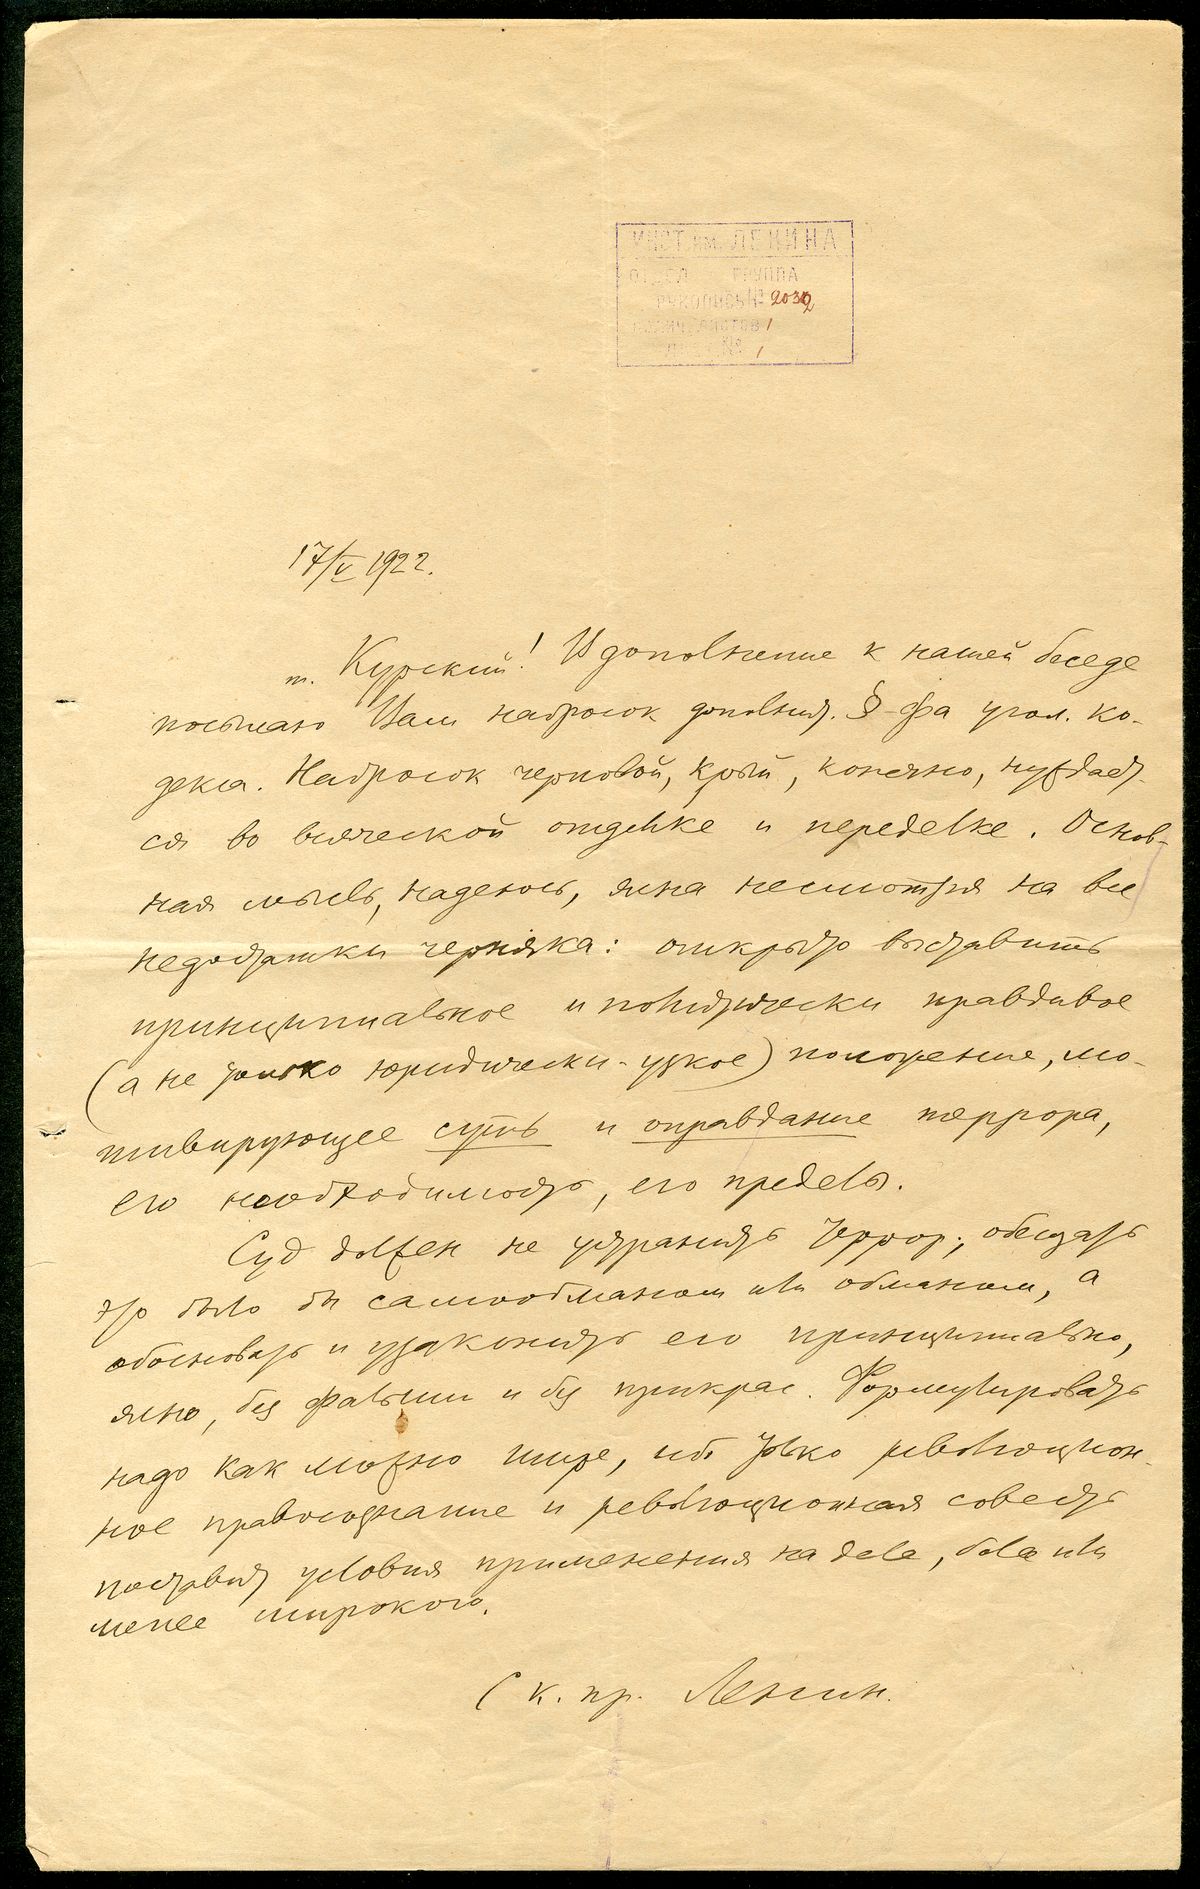 ИНСТ. им. ЛЕНИНА
ОТДЕЛ ГРУППА
РУКОПИСЬ № 2032
КОЛИЧ. ЛИСТОВ 1
№ 1
17/V 1922.
т. Курский! В дополнение к нашей беседе
посылаю Вам набросок дополнит. §-фа угол. ко-
декса. Набросок черновой, крый, конечно, нуждает-
ся во всяческой отделке и переделке. Основ-
ная мысль, надеюсь, ясна несмотря на все
недостатки черняка: открыто выставить
принципиальное и политически правдивое
(а не только юридически-узкое) положение, мо-
тивирующее суть и оправдание террора,
его необходимость, его пределы.
Суд должен не устранить террор; обещать
это было бы самообманом или обманом, а
обосновать и узаконить его принципиально,
ясно, без фальши и без прикрас. Формулировать
надо как можно шире, ибо только революцион-
ное правосознание и революционная совесть
поставит условия применения на деле, более или
менее широкого.
С к. пр. Ленин.